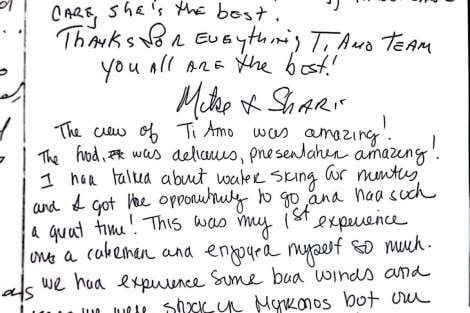 CARE, she's the best.
Thanks for Everything Ti Amo Team
you all are the best!
Mike & Shari
The crew of Ti Amo was amazing!
The food, was delicious, presentation amazing!
I had talked about water skiing for months
and I got the opportunity to go and had such
a great time! This was my 1st experience
on a catamaran and enjoyed myself so much.
we had experience some bad winds and
we were stuck in Mykonos but our